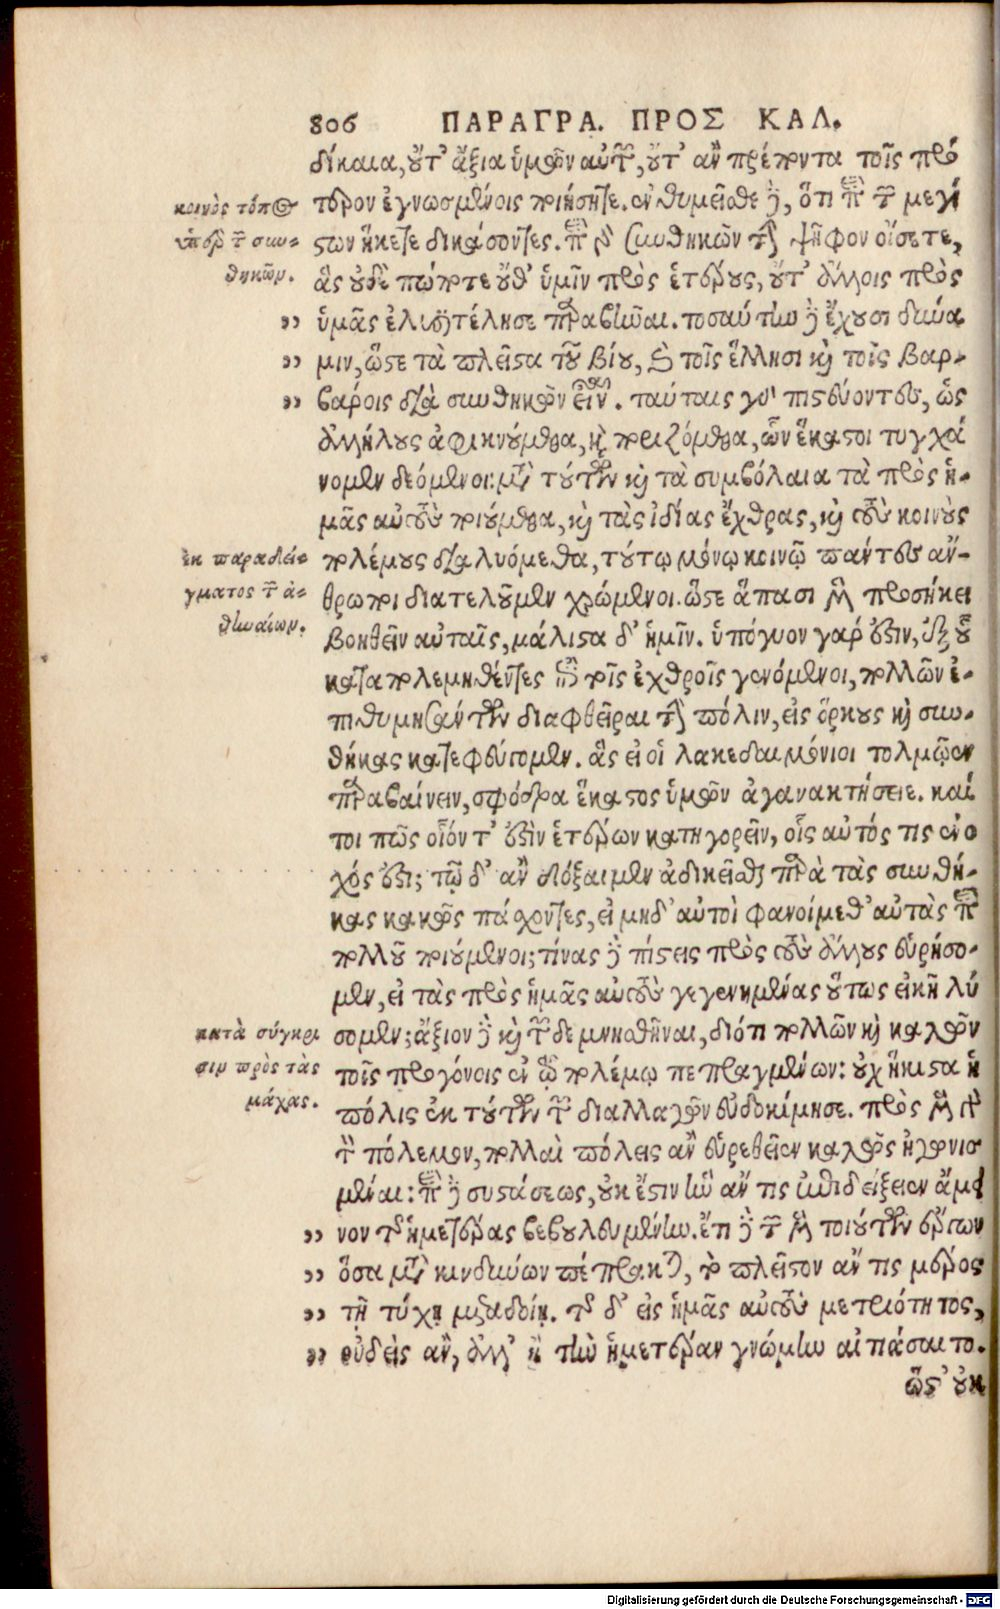 806 ΠΑΡΑΓΡΑ. ΠΡΟΣ ΚΑΛ.
δίκαια, οὔτ' ἄξια ὑμῶν αὐτῶν, οὔτ' ἂν πρέποντα τοῖς πρό
τερον ἐγνωσμένοις ποιήσητε. ἐνθυμεῖσθε δὲ, ὅτι περὶ τῶν μεγί
κοινὸς τόπος
στων ἥκετε δικάσοντες. περὶ γὰρ συνθηκῶν τὴν ψῆφον οἴσετε,
ὑπὲρ τῶν συν-
ἃς οὐδὲ πώποτε οὔθ' ὑμῖν πρὸς ἑτέρους, οὔτ' ἄλλοις πρὸς
θηκῶν.
,, ὑμᾶς ἐλυσιτέλησε παραβῆναι. τοσαύτην δὲ ἔχουσι δύνα
,, μιν, ὥστε τὰ πλεῖστα τοῦ βίου, καὶ τοῖς ἕλλησι καὶ τοῖς βαρ-
,, βάροις διὰ συνθηκῶν εἶναι. ταύταις γὰρ πιστεύοντες, ὡς
ἀλλήλους ἀφικνούμεθα, καὶ ποριζόμεθα, ὧν ἕκαστοι τυγχά
νομεν δεόμενοι: μετὰ τούτων καὶ τὰ συμβόλαια τὰ πρὸς ἡ-
μᾶς αὐτοὺς ποιούμεθα, καὶ τὰς ἰδίας ἔχθρας, καὶ τοὺς κοινοὺς
πολέμους διαλυόμεθα, τούτῳ μόνῳ κοινῷ πάντες ἄν-
ἐκ παραδεί-
θρωποι διατελοῦμεν χρώμενοι. ὥστε ἅπασι μὲν προσήκει
γματος τῶν ἀ-
βοηθεῖν αὐταῖς, μάλιστα δ' ἡμῖν. ὑπόγυον γάρ ἐστιν, ἐξ οὗ
θηναίων.
καταπολεμηθέντες ἐπὶ τοῖς ἐχθροῖς γενόμενοι, πολλῶν ἐ-
πιθυμησάντων διαφθεῖραι τὴν πόλιν, εἰς ὅρκους καὶ συν-
θήκας κατεφύγομεν. ἃς εἰ οἱ λακεδαιμόνιοι τολμῷεν
παραβαίνειν, σφόδρα ἕκαστος ὑμῶν ἀγανακτήσειε. καί
τοι πῶς οἷόν τ' ἐστὶν ἑτέρων κατηγορεῖν, οἷς αὐτός τις ἔνο
χός ἐστι; τῷ δ' ἂν δόξαιμεν ἀδικεῖσθαι παρὰ τὰς συνθή-
κας κακῶς πάσχοντες, εἰ μηδ' αὐτοὶ φανοίμεθ' αὐτὰς περὶ
πολλοῦ ποιούμενοι; τίνας δὲ πίστεις πρὸς τοὺς ἄλλους εὑρήσο-
μεν, εἰ τὰς πρὸς ἡμᾶς αὐτοὺς γεγενημένας οὕτως εἰκῆ λύ
σομεν; ἄξιον δὲ καὶ τῶνδε μνησθῆναι, διότι πολλῶν καὶ καλῶν
κατὰ σύγκρι
τοῖς προγόνοις ἐν τῷ πολέμῳ πεπραγμένων: οὐχ ἥκιστα ἡ
σιν πρὸς τὰς
πόλις ἐκ τούτων τῶν διαλλαγῶν εὐδοκίμησε. πρὸς μὲν γὰρ
μάχας.
τὸν πόλεμον, πολλαὶ πόλεις ἂν εὑρεθεῖεν καλῶς ἠγωνισ
μέναι: περὶ δὲ συστάσεως, οὐκ ἔστιν ἣν ἄν τις ἐπιδείξειεν ἄμει
,, νον τῆς ἡμετέρας βεβουλευμένην. ἔτι δὲ τῶν μὲν τοιούτων ἔργων
,, ὅσα μετὰ κινδύνων πέπρακται, τὸ πλεῖστον ἄν τις μέρος
,, τῇ τύχῃ μεταδοίη. τῆς δ' εἰς ἡμᾶς αὐτοὺς μετριότητος,
,, οὐδεὶς ἂν, ἀλλ' ἢ τὴν ἡμετέραν γνώμην αἰτιάσαιτο.
ὥστ' οὐκ
Digitalisierung gefördert durch die Deutsche Forschungsgemeinschaft - DFG